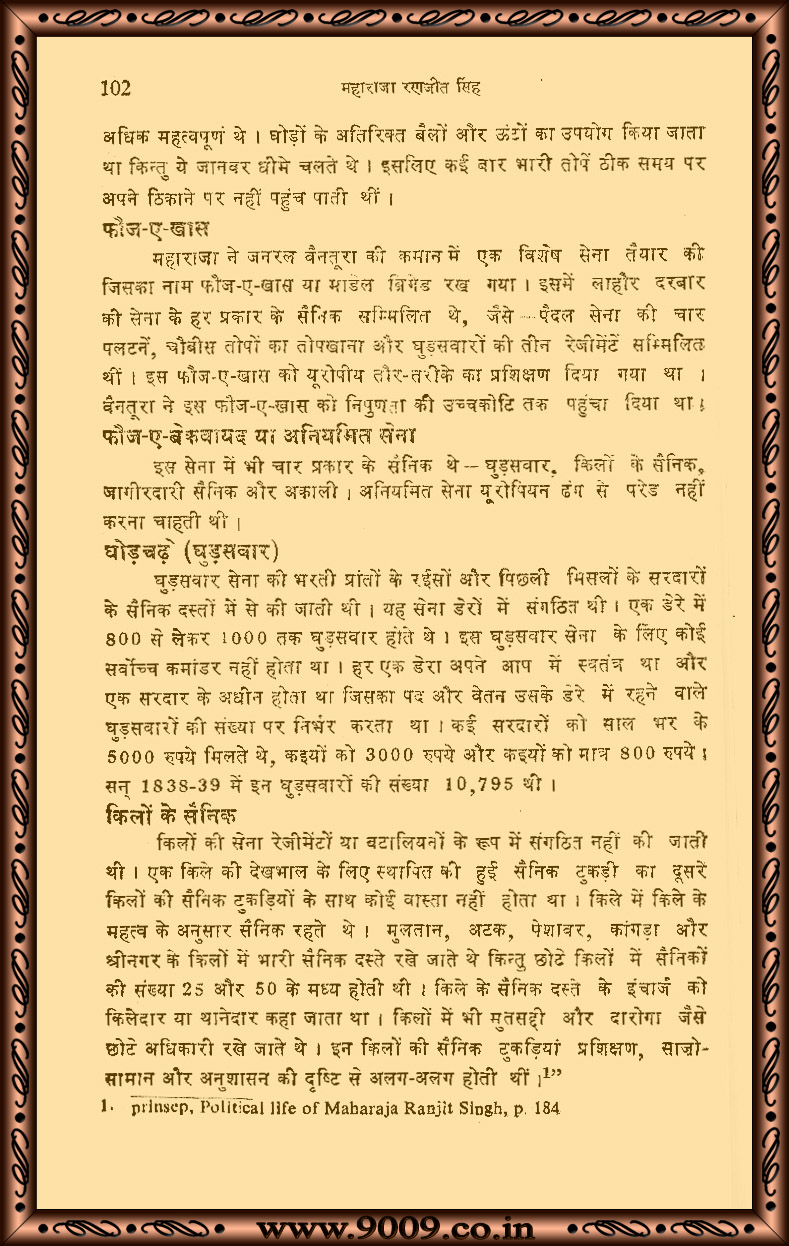 102 महाराजा रणजीत सिंह
अधिक महत्वपूर्ण थे । घोड़ों के अतिरिक्त बैलों और ऊंटों का उपयोग किया जाता
था किन्तु ये जानवर धीमे चलते थे । इसलिए कई बार भारी तोपें ठीक समय पर
अपने ठिकाने पर नहीं पहुंच पाती थीं ।
फौज-ए-खास
महाराजा ने जनरल वैनतूरा की कमान में एक विशेष सेना तैयार की
जिसका नाम फौज-ए-खास या माडल ब्रिगेड रख गया । इसमें लाहौर दरबार
की सेना के हर प्रकार के सैनिक सम्मिलित थे, जैसे—पैदल सेना की चार
पलटनें, चौबीस तोपों का तोपखाना और घुड़सवारों की तीन रेजीमेंटें सम्मिलित
थीं । इस फौज-ए-खास को यूरोपीय तौर-तरीके का प्रशिक्षण दिया गया था ।
वैनतूरा ने इस फौज-ए-खास को निपुणता की उच्चकोटि तक पहुंचा दिया था ।
फौज-ए-बेकवायद या अनियमित सेना
इस सेना में भी चार प्रकार के सैनिक थे—घुड़सवार, किलों के सैनिक,
जागीरदारी सैनिक और अकाली । अनियमित सेना यूरोपियन ढंग से परेड नहीं
करना चाहती थी ।
घोड़चढ़े (घुड़सवार)
घुड़सवार सेना की भरती प्रांतों के रईसों और पिछली मिसलों के सरदारों
के सैनिक दस्तों में से की जाती थी । यह सेना डेरों में संगठित थी । एक डेरे में
800 से लेकर 1000 तक घुड़सवार होते थे । इस घुड़सवार सेना के लिए कोई
सर्वोच्च कमांडर नहीं होता था । हर एक डेरा अपने आप में स्वतंत्र था और
एक सरदार के अधीन होता था जिसका पद और वेतन उसके डेरे में रहने वाले
घुड़सवारों की संख्या पर निर्भर करता था । कई सरदारों को साल भर के
5000 रुपये मिलते थे, कइयों को 3000 रुपये और कइयों को मात्र 800 रुपये ।
सन् 1838-39 में इन घुड़सवारों की संख्या 10,795 थी ।
किलों के सैनिक
किलों की सेना रेजीमेंटों या बटालियनों के रूप में संगठित नहीं की जाती
थी । एक किले की देखभाल के लिए स्थापित की हुई सैनिक टुकड़ी का दूसरे
किलों की सैनिक टुकड़ियों के साथ कोई वास्ता नहीं होता था । किले में किले के
महत्व के अनुसार सैनिक रहते थे । मुलतान, अटक, पेशावर, कांगड़ा और
श्रीनगर के किलों में भारी सैनिक दस्ते रखे जाते थे किन्तु छोटे किलों में सैनिकों
की संख्या 25 और 50 के मध्य होती थी । किले के सैनिक दस्ते के इंचार्ज को
किलेदार या थानेदार कहा जाता था । किलों में भी मुतसद्दी और दारोगा जैसे
छोटे अधिकारी रखे जाते थे । इन किलों की सैनिक टुकड़ियां प्रशिक्षण, साजो-
सामान और अनुशासन की दृष्टि से अलग-अलग होती थीं ।1”
1. prinsep, Political life of Maharaja Ranjit Singh, p. 184
www.9009.co.in